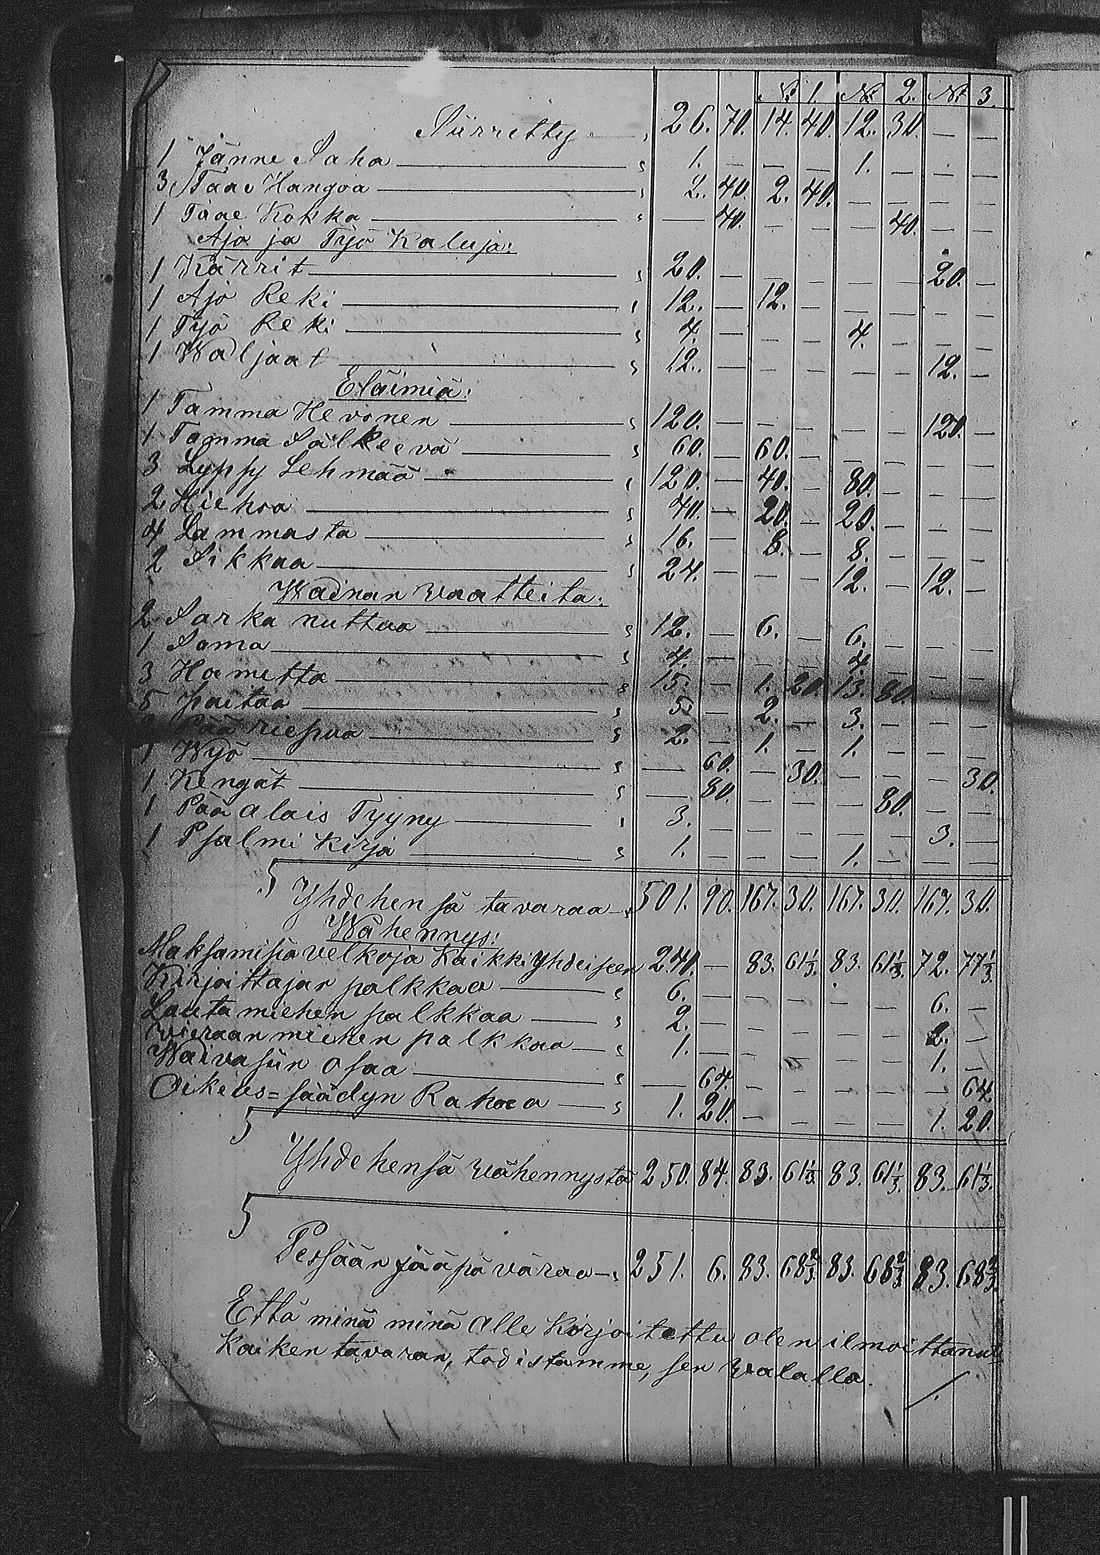 N: 1. N: 2. N: 3.
Siirretty „ 26. 70. 14. 40. 12. 30. — —
1 Jänne Saha „ 1. — — — 1. — — —
3 Taae Hangoa „ 2. 40. 2. 40. — — — —
1 Taae Kokka „ — 40. — — — 40. — —
Ajo ja Työ Kaluja:
1 Kärrit „ 20. — — — — — 20. —
1 Ajo Reki „ 12. — 12. — — — — —
1 Työ Reki „ 4. — — — 4. — — —
1 Waljaat „ 12. — — — — — 12. —
Eläimiä:
1 Tamma Hevonen „ 120. — — — — — 120. —
1 Tamma Sälkeevä „ 60. — 60. — — — — —
3 Lyppy Lehmää „ 120. — 40. — 80. — — —
2 Hiehoa „ 40. — 20. — 20. — — —
4 Lammasta „ 16. — 8. — 8. — — —
2 Sikkaa „ 24. — — — 12. — 12. —
Wainan Waatteita:
2 Sarka nuttua „ 12. — 6. — 6. — — —
1 Soma „ 4. — — — 4. — — —
3 Hametta „ 15. — 1. 20. 13. 80. — —
5 paitaa „ 5. — 2. — 3. — — —
2 Pää riepua „ 2. — 1. — 1. — — —
1 Wyö „ — 60. — 30. — — — 30.
1 Kengät „ — 80. — — — 80. — —
1 Pää alais Tyyny „ 3. — — — — — 3. —
1 Psalmi Kirja „ 1. — — — 1. — — —
Yhdehensä tavaraa „ 501. 90. 167. 30. 167. 30. 167. 30.
Wähennys:
Maksamisia velkoja Kaikki Yhdeisen 240. — 83. 61 1/3. 83. 61 1/3. 72. 77 1/3.
Kirjoittajan palkkaa „ 6. — — — — — 6. —
Lautamiehen palkkaa „ 2. — — — — — 2. —
vieraanmiehen palkkaa „ 1. — — — — — 1. —
Waivasiin osaa „ — 64. — — — — — 64.
Oikeus=säädyn Rahaa „ 1. 20. — — — — 1. 20.
Yhdehensä wähennystä 250. 84. 83. 61 1/3. 83. 61 1/3. 83. 61 1/3.
Pessään jääpä väraa „ 251. 6. 83. 68 2/3. 83. 68 2/3. 83. 68 2/3.
Että minä minä alle Kirjoitettu olen ilmoittanut
Kaiken tavaran, todistamme, sen Walalla.